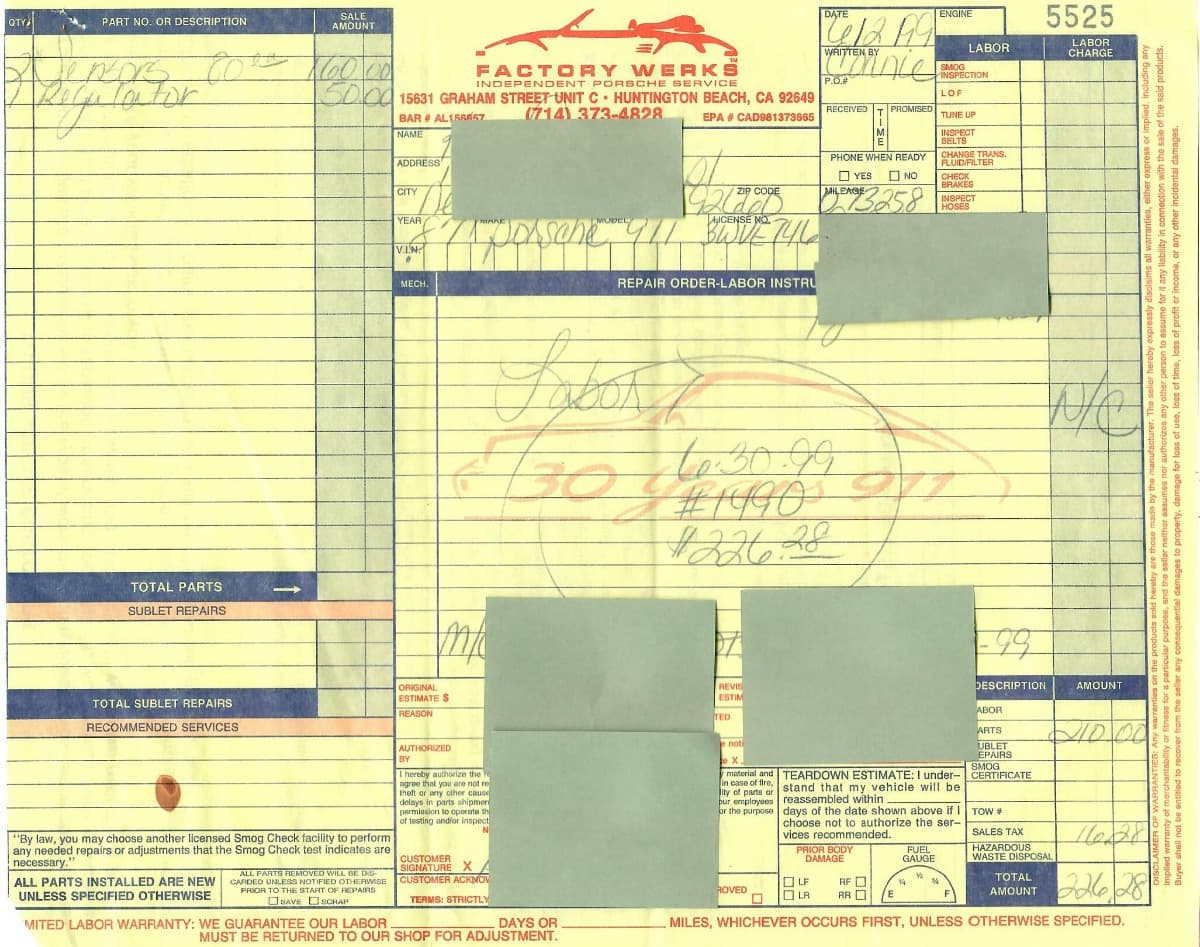 5525
QTY. PART NO. OR DESCRIPTION SALE AMOUNT
2 Sensors 80 00 160.00
1 Regulator 50.00
TOTAL PARTS
SUBLET REPAIRS
TOTAL SUBLET REPAIRS
RECOMMENDED SERVICES
"By law, you may choose another licensed Smog Check facility to perform
any needed repairs or adjustments that the Smog Check test indicates are
necessary."
ALL PARTS INSTALLED ARE NEW
UNLESS SPECIFIED OTHERWISE
ALL PARTS REMOVED WILL BE DIS-
CARDED UNLESS NOTIFIED OTHERWISE
PRIOR TO THE START OF REPAIRS
SAVE SCRAP
FACTORY WERKS
INDEPENDENT PORSCHE SERVICE
15631 GRAHAM STREET UNIT C • HUNTINGTON BEACH, CA 92649
BAR # AL156957 (714) 373-4828 EPA # CAD981373665
NAME
ADDRESS
CITY ZIP CODE
YEAR MAKE MODEL LICENSE NO.
87 Porsche 911 3WVE746
V.I.N. #
DATE 6/2/99
WRITTEN BY Connie
P.O.#
RECEIVED TIME PROMISED
PHONE WHEN READY
YES NO
MILEAGE
073258
ENGINE
LABOR LABOR CHARGE
SMOG INSPECTION
L O F
TUNE UP
INSPECT BELTS
CHANGE TRANS. FLUID/FILTER
CHECK BRAKES
INSPECT HOSES
MECH. REPAIR ORDER-LABOR INSTRU
Labor N/C
30 Years 911
6.30.99
#1490
$226.28
M/C -99
ORIGINAL ESTIMATE $
REASON
AUTHORIZED BY
REVIS
ESTIM
I hereby authorize the
agree that you are not re
theft or any other cause
delays in parts shipmen
permission to operate th
of testing and/or inspect
y material and
in case of fire,
lity of parts or
our employees
or the purpose
CUSTOMER SIGNATURE X
CUSTOMER ACKNOW
TERMS: STRICTLY
ROVED
TEARDOWN ESTIMATE: I under-
stand that my vehicle will be
reassembled within
days of the date shown above if I
choose not to authorize the ser-
vices recommended.
PRIOR BODY DAMAGE
LF RF
LR RR
FUEL GAUGE
E ¼ ½ ¾ F
DESCRIPTION AMOUNT
ABOR
ARTS 210.00
UBLET EPAIRS
SMOG CERTIFICATE
TOW #
SALES TAX 16.28
HAZARDOUS WASTE DISPOSAL
TOTAL AMOUNT 226.28
MITED LABOR WARRANTY: WE GUARANTEE OUR LABOR DAYS OR MILES, WHICHEVER OCCURS FIRST, UNLESS OTHERWISE SPECIFIED.
MUST BE RETURNED TO OUR SHOP FOR ADJUSTMENT.
DISCLAIMER OF WARRANTIES: Any warranties on the products sold hereby are those made by the manufacturer. The seller hereby expressly disclaims all warranties, either express or implied, including any
implied warranty of merchantability or fitness for a particular purpose, and the seller neither assumes nor authorizes any other person to assume for it any liability in connection with the sale of the said products.
Buyer shall not be entitled to recover from the seller any consequential damages to property, damage for loss of use, loss of time, loss of profit or income, or any other incidental damages.